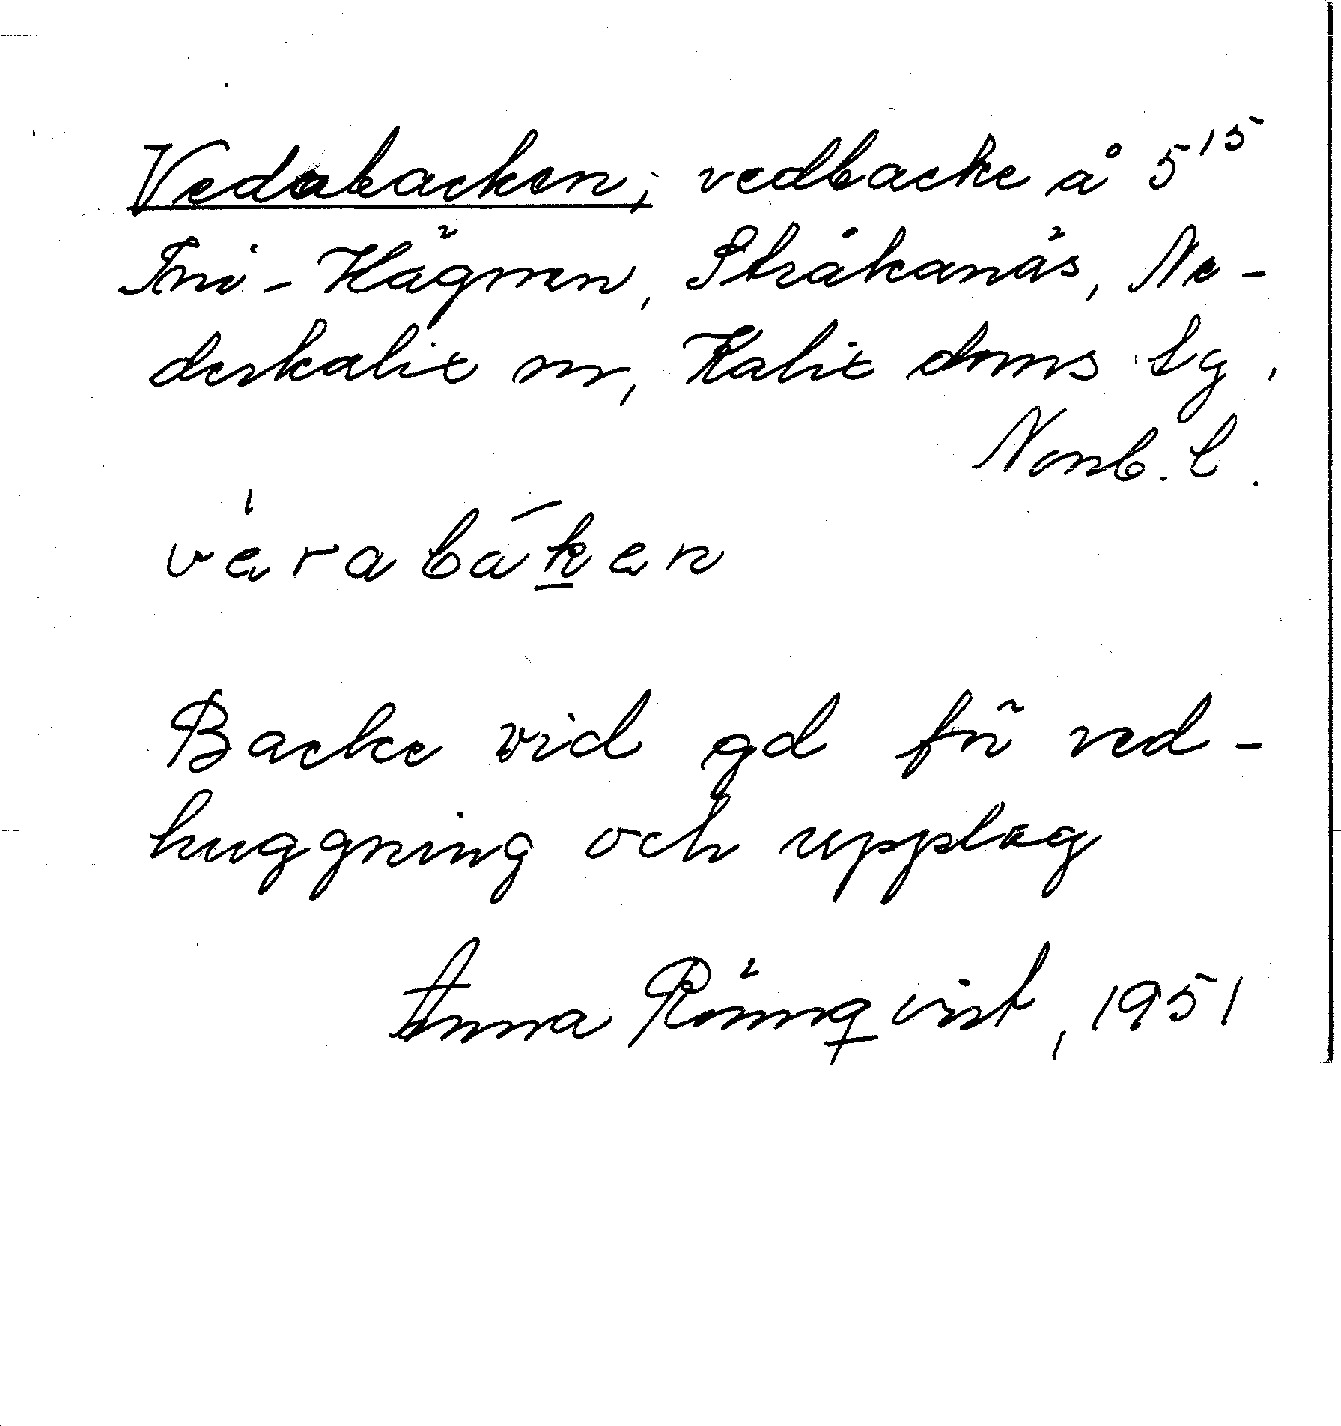 Vedabacken, vedbacke å 5¹⁵
Fri-Hägnen, Stråkanäs, Ne-
derkalix sn, Kalix doms lg,
Norrb. l.
vèrabáken
Backe vid gd för ved-
huggning och upplag
Anna Rönnqvist, 1951